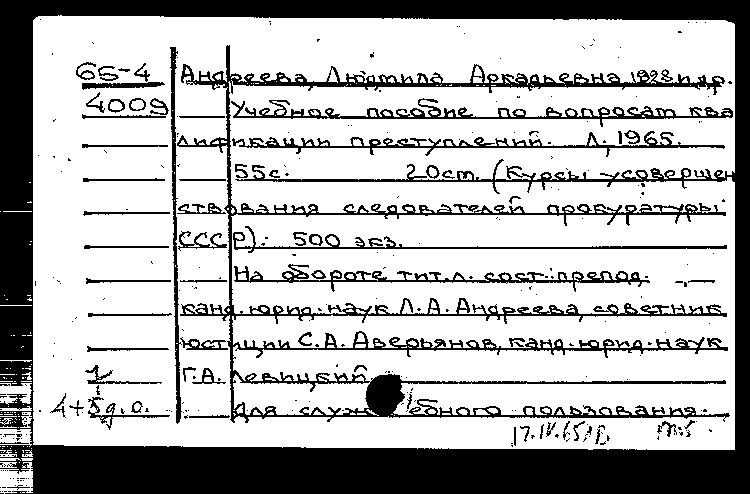 66-4 Андреева, Людмила Аркадьевна, 1928 и др.
4009 Учебное пособие по вопросам ква
лификации преступлений. Л., 1965.
55с. 20см. (Курсы усовершен
ствования следователей прокуратуры
СССР). 500 экз.
На обороте тит.л. сост.: препод.
канд. юрид. наук Л.А. Андреева, советник
юстиции С.А. Аверьянов, канд. юрид. наук
Г.А. Левицкий
Для служебного пользования.
17.IV.65